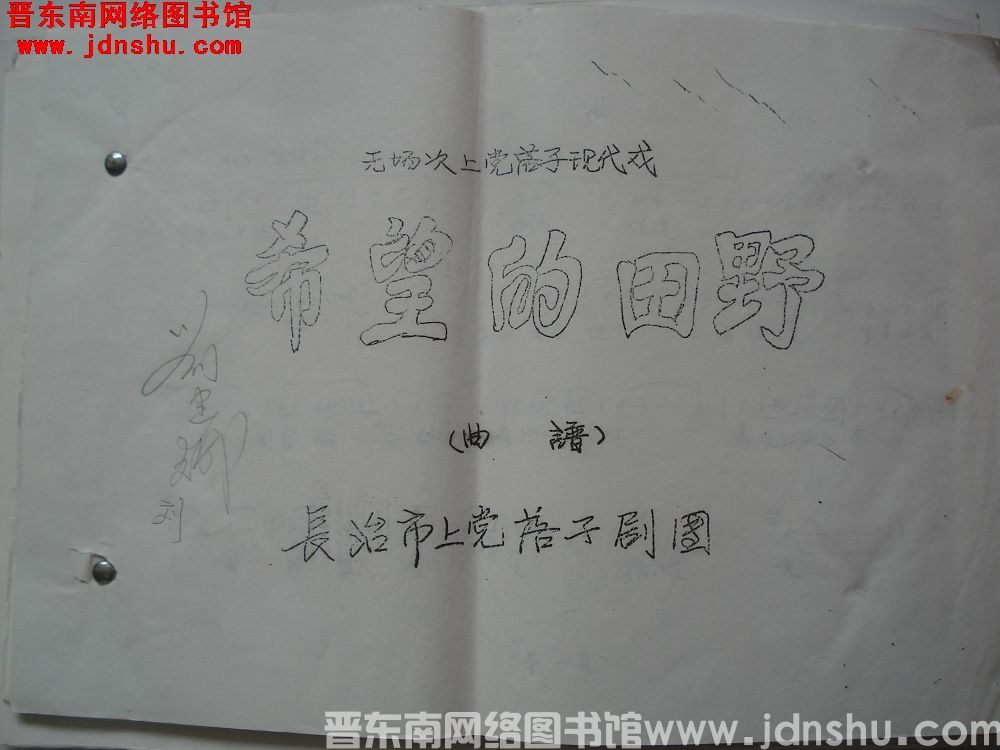 晋东南网络图书馆
www. jdnshu.com
无场次上党落子现代戏
希望的田野
(曲 譜)
長治市上党落子剧团
刘
晋东南网络图书馆www.jdnshu.com